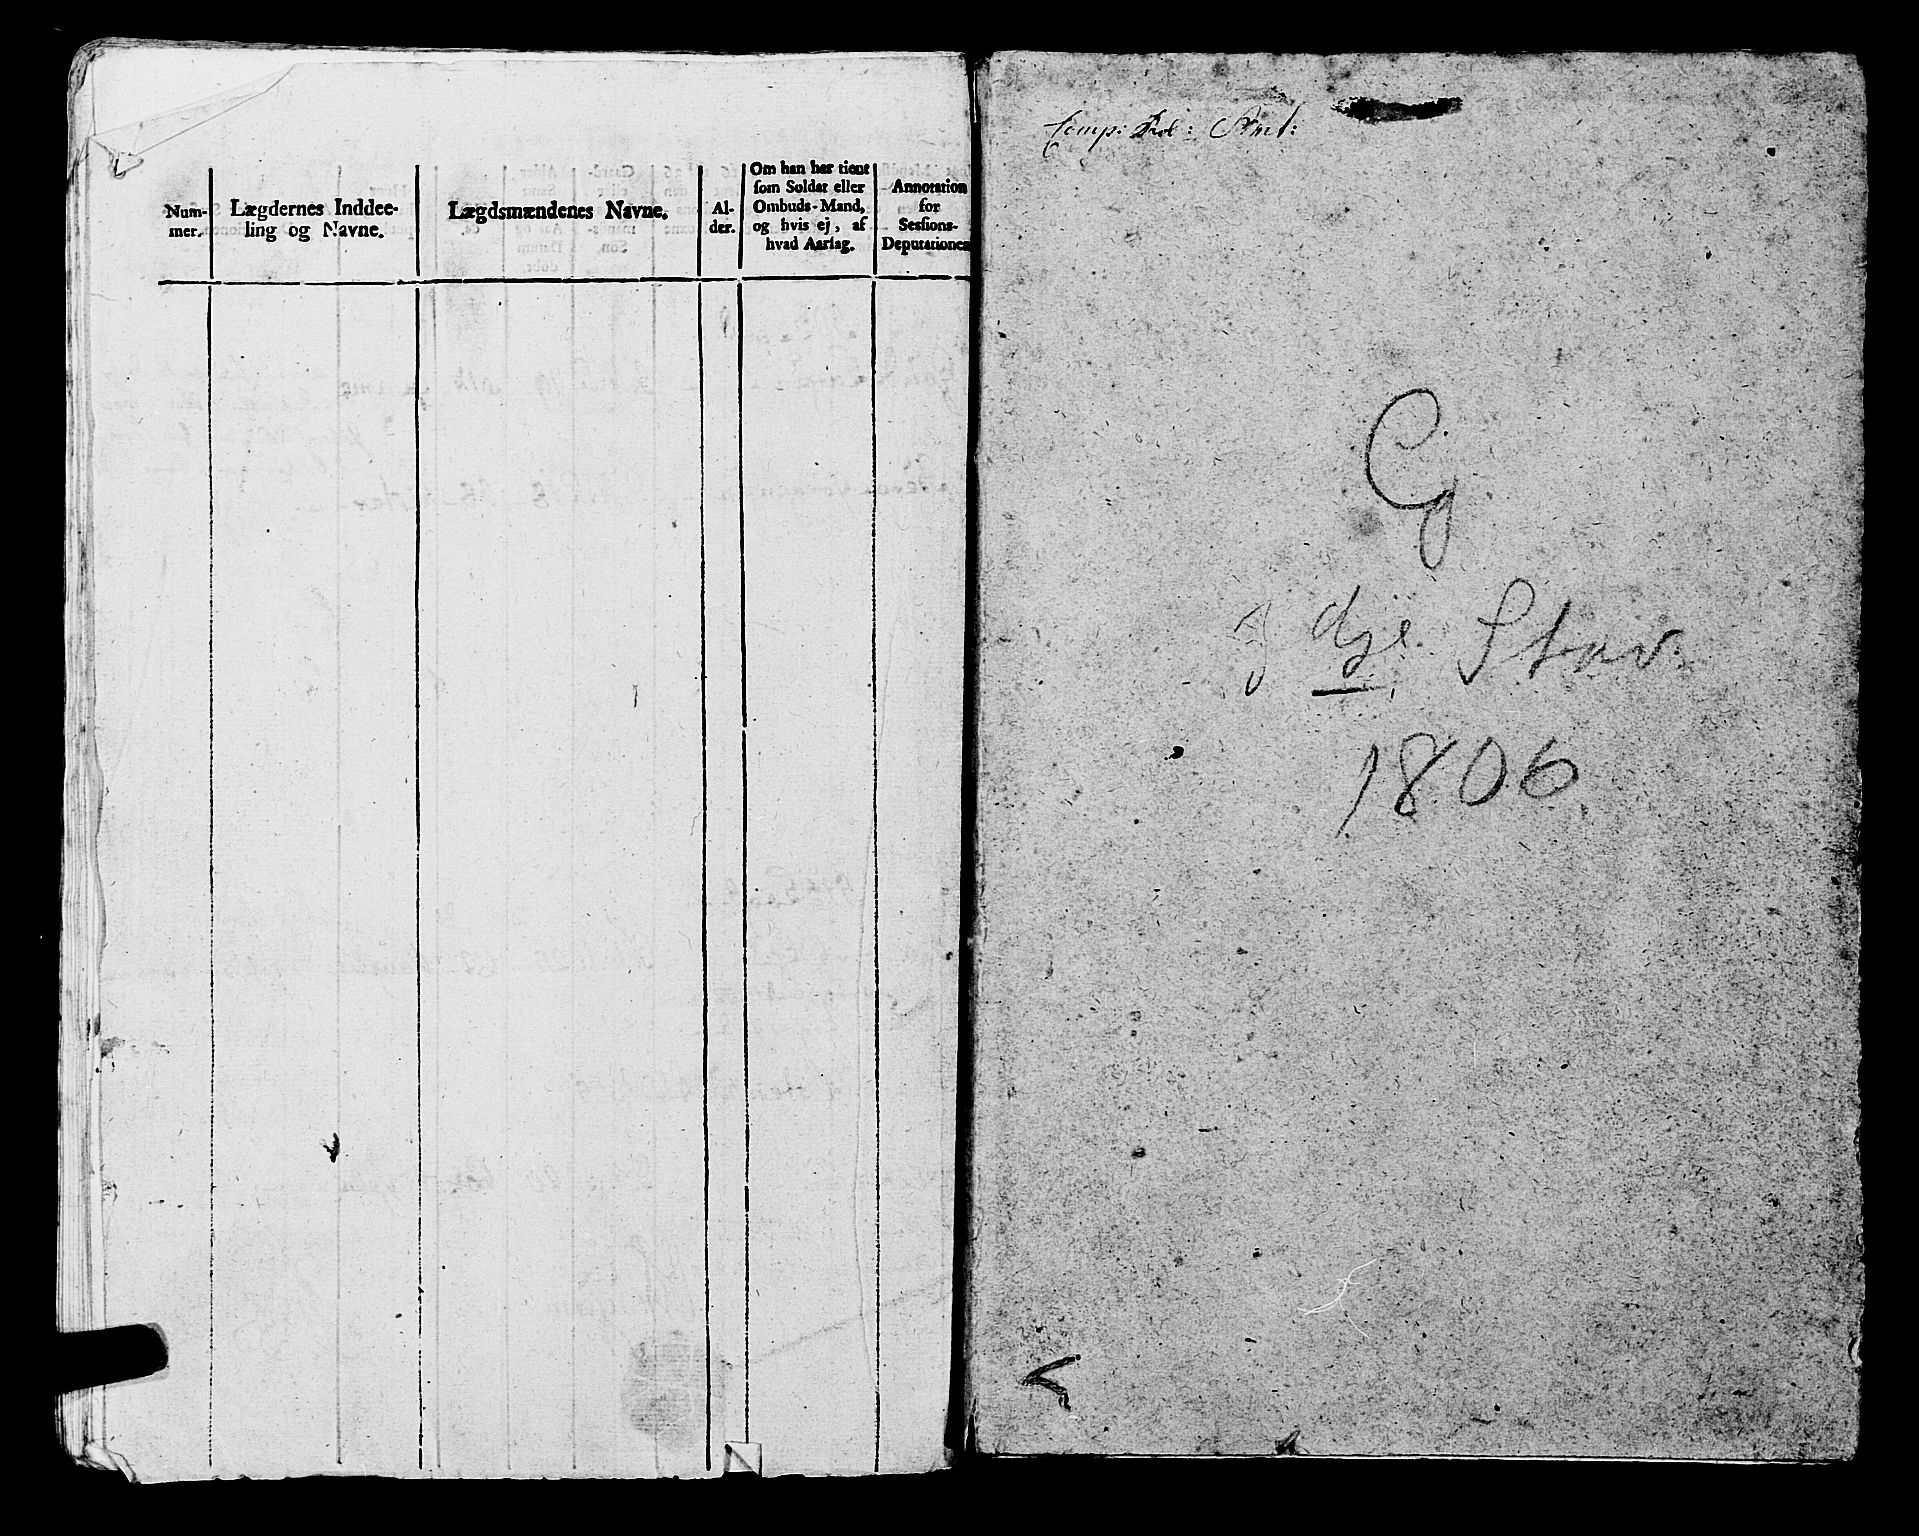 Num-
mer.
Lægdernes Inddee-
ling og Navne.
Lægdsmændenes Navne.
Al-
der.
Om han har tient
som Soldat eller
Ombuds-Mand,
og hvis ej, af
hvad Aarsag.
Annotation
for
Sessions-
Deputationen
Comp: Amt:
dje Stav:
1806